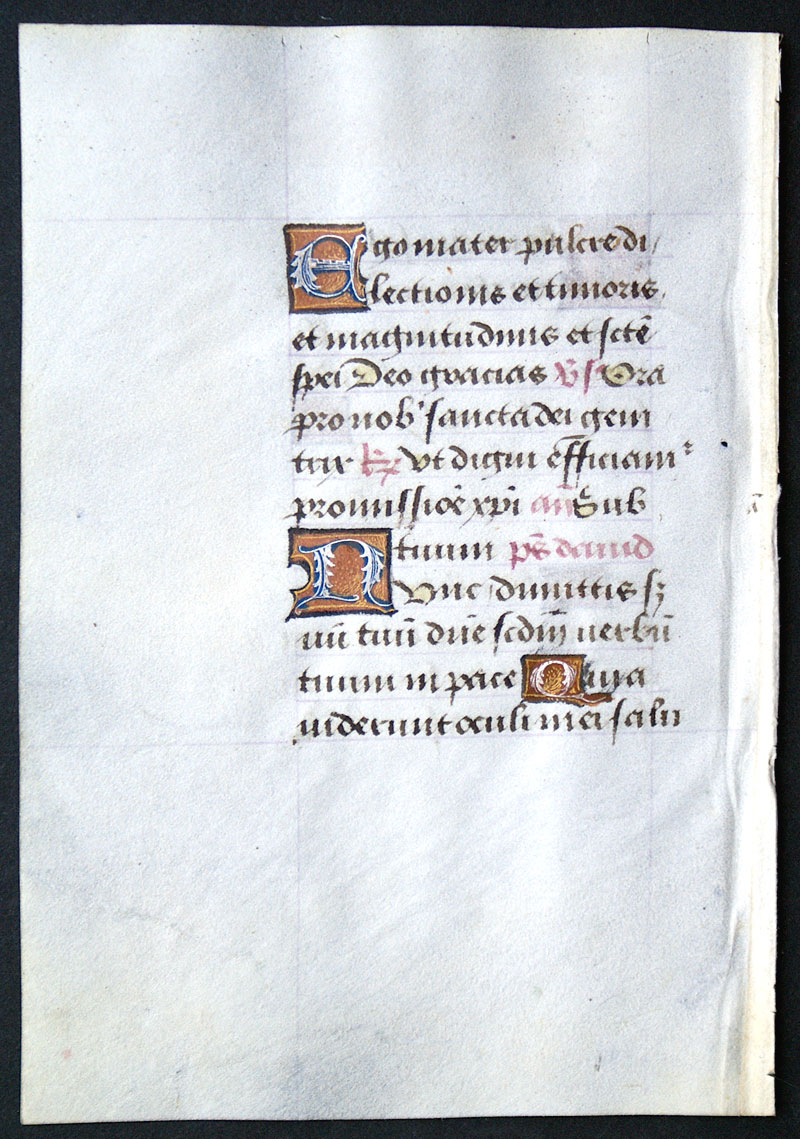 Ego mater pulcre di/
lectionis et timoris.
et magnitudinis et sctē
spei Deo gracias v̄s Ora
pro nob' sancta dei geni
trix ℟ vt digni efficiam᷑
promissiōe xp̄i an̄ Sub
tuum ps̄ dauid
Nvnc dimittis ẜ
uū tuū dn̄e scdm̄ uerbū
tuum in pace Quia
uiderunt oculi mei salu